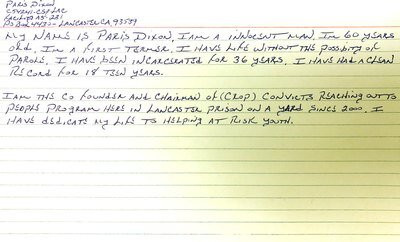 PARIS DIXON
C54241-CSP LAC
FAC-A5-231
PO BOX 4430 - LANCASTER, CA 93539
MY NAME IS PARIS DIXON, I AM A INNOCENT MAN. I'M 60 YEARS
OLD. I'M A FIRST TERMER. I HAVE LIFE WITHOUT THE POSSIBITY OF
PAROLE, I HAVE BEEN INCARCERATED FOR 36 YEARS. I HAVE HAD A CLEAN
RECORD FOR 18 TEEN YEARS.
I AM THE CO FOUNDER AND CHAIRMAN OF (CROP) CONVICTS REACHING OUT TO
PEOPLE PROGRAM HERE IN LANCASTER PRISON ON A YARD SINCE 2000. I
HAVE DEDICATE MY LIFE TO HELPING AT RISK YOUTH.